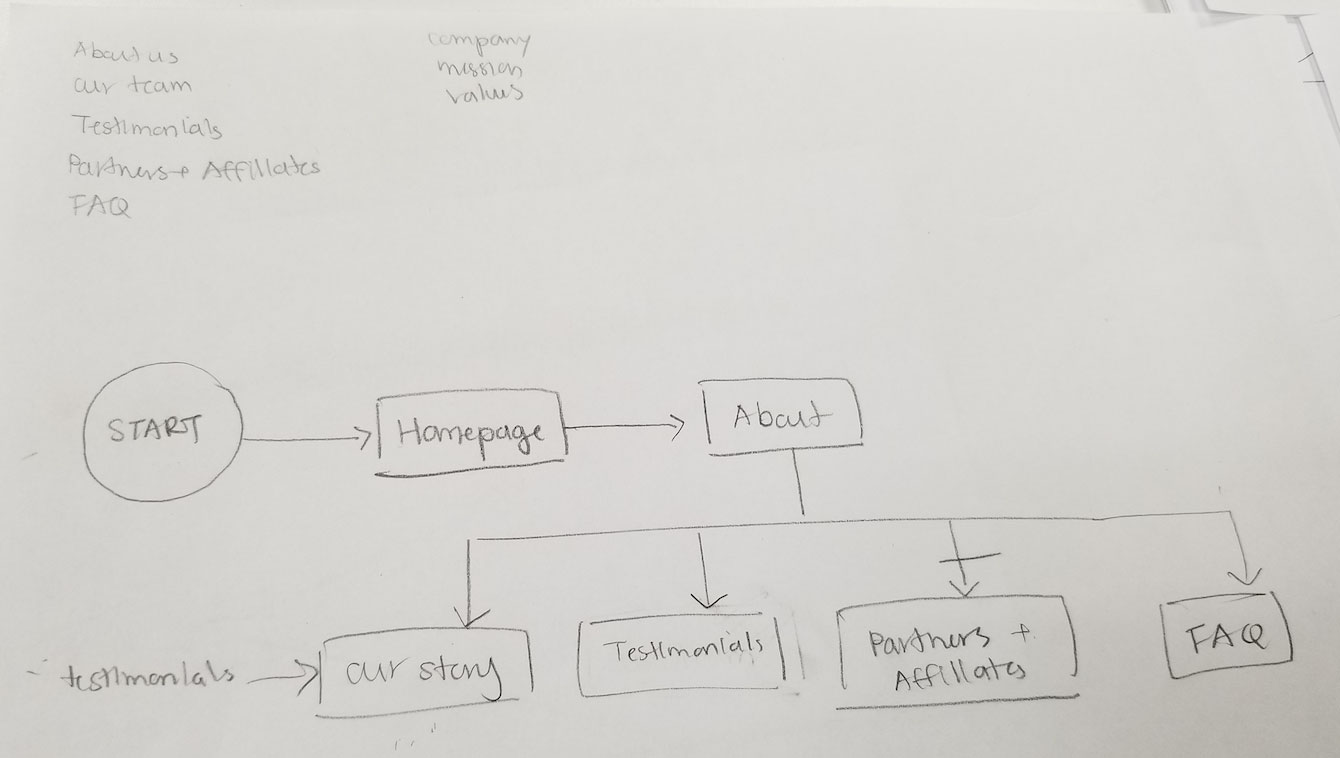 About us
our team
Testimonials
Partners + Affillates
FAQ
company
mission
values
START
Homepage
About
testimonials
our story
Testimonials
Partners +
Affillates
FAQ